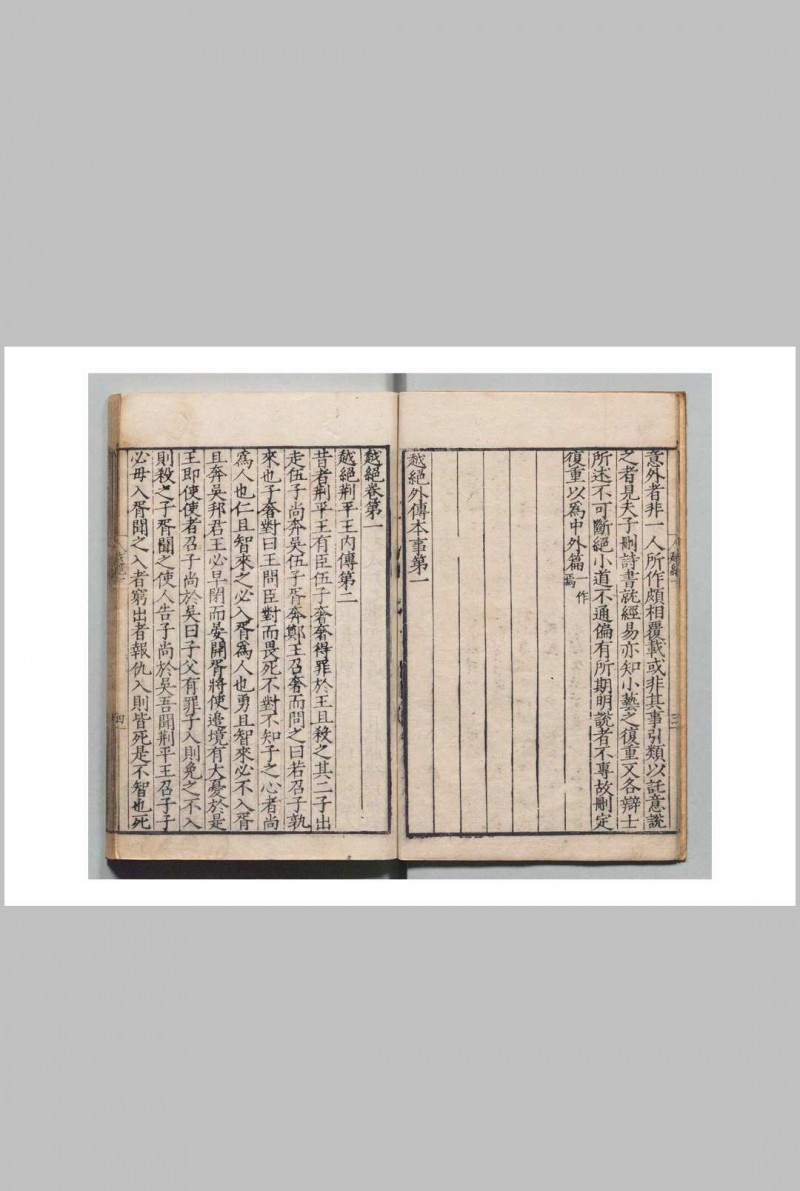 意外者非一人所作頗相覆載或非其事引類以託意說
之者見夫子刪詩書就經易亦知小藝之復重又各辯士
所述不可斷絕小道不通偏有所期明說者不專故刪定
復重以為中外篇一作焉
越絕外傳本事第一
越絕卷第一
越絕荆平王內傳第二
昔者荆平王有臣伍子奢奢得罪於王且殺之其二子出
走伍子尚奔吳伍子胥奔鄭王召奢而問之曰若召子孰
來也子奢對曰王問臣對而畏死不對不知子之心者尚
為人也仁且智來之必入胥為人也勇且智來必不入胥
且奔吳邦君王必早閉而晏開胥將使邊境有大憂於是
王即使使者召子尚於吳曰子父有罪子入則免之不入
則殺之子胥聞之使人告子尚於吳吾聞荆平王召子子
必毋入胥聞之入者窮出者報仇入則皆死是不智也死
三
四